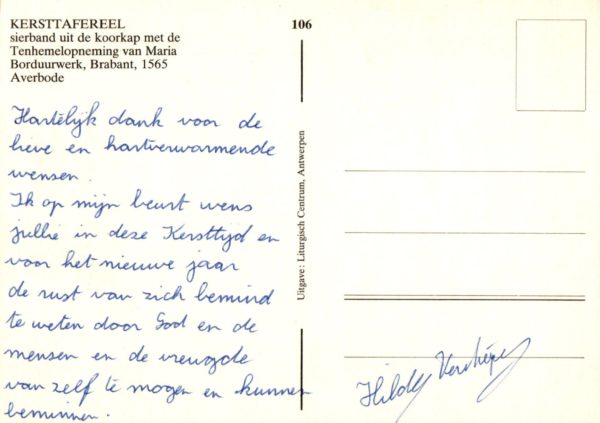 KERSTTAFEREEL
sierband uit de koorkap met de
Tenhemelopneming van Maria
Borduurwerk, Brabant, 1565
Averbode
106
Hartelijk dank voor de
lieve en hartverwarmende
wensen.
Ik op mijn beurt wens
jullie in deze Kersttijd en
voor het nieuwe jaar
de rust van zich bemind
te weten door God en de
mensen en de vreugde
van zelf te mogen en kunnen
beminnen.
Uitgave: Liturgisch Centrum, Antwerpen
Hilde